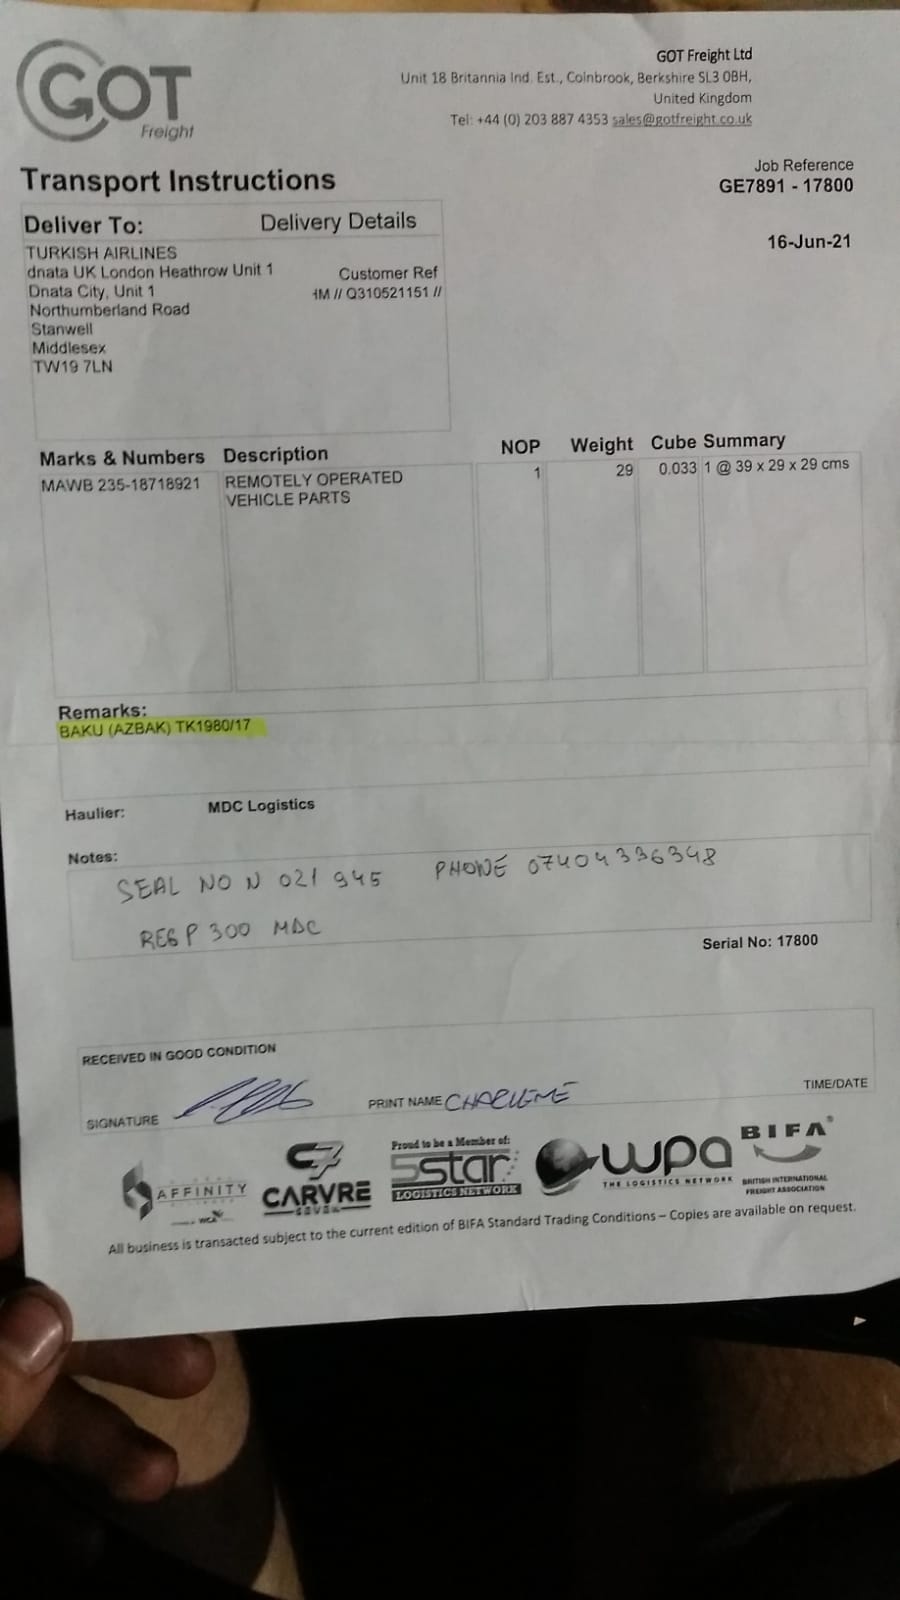 GOT
Freight
GOT Freight Ltd
Unit 18 Britannia Ind. Est., Colnbrook, Berkshire SL3 0BH,
United Kingdom
Tel: +44 (0) 203 887 4353 sales@gotfreight.co.uk
Transport Instructions
Job Reference
GE7891 - 17800
16-Jun-21
Deliver To: Delivery Details
TURKISH AIRLINES
dnata UK London Heathrow Unit 1
Dnata City, Unit 1
Northumberland Road
Stanwell
Middlesex
TW19 7LN
Customer Ref
HM // Q310521151 //
Marks & Numbers Description NOP Weight Cube Summary
MAWB 235-18718921 REMOTELY OPERATED 1 29 0.033 1 @ 39 x 29 x 29 cms
VEHICLE PARTS
Remarks:
BAKU (AZBAK) TK1980/17
Haulier: MDC Logistics
Notes:
SEAL NO N 021 945 PHONE 07404336348
REG P 300 MDC
Serial No: 17800
RECEIVED IN GOOD CONDITION
SIGNATURE PRINT NAME CHARLENE TIME/DATE
AFFINITY
WCA
C7
CARVRE
SEVEN
Proud to be a Member of:
5star
LOGISTICS NETWORK
wpa
THE LOGISTICS NETWORK
BIFA®
BRITISH INTERNATIONAL
FREIGHT ASSOCIATION
All business is transacted subject to the current edition of BIFA Standard Trading Conditions – Copies are available on request.